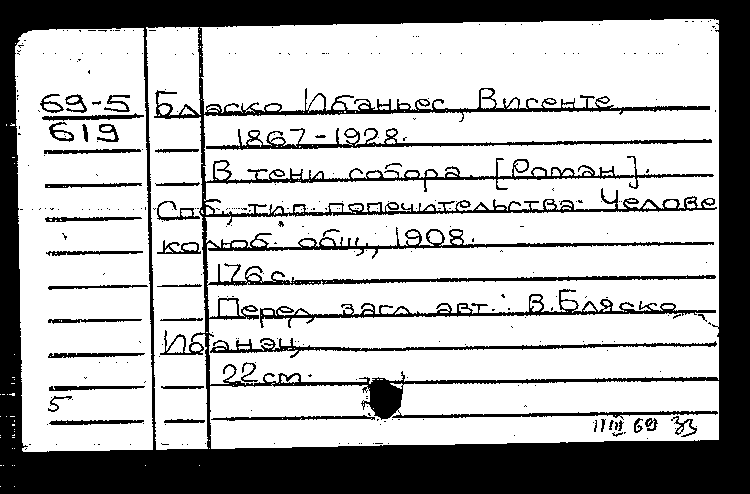 69-5 Бласко Ибаньес, Висенте,
619 1867-1928.
В тени собора. [Роман].
Спб., тип. попечительства Челове
колюб. общ., 1908.
176 с.
Перед загл. авт.: В. Бляско
Ибанец
22 cm.
5
11 III 69